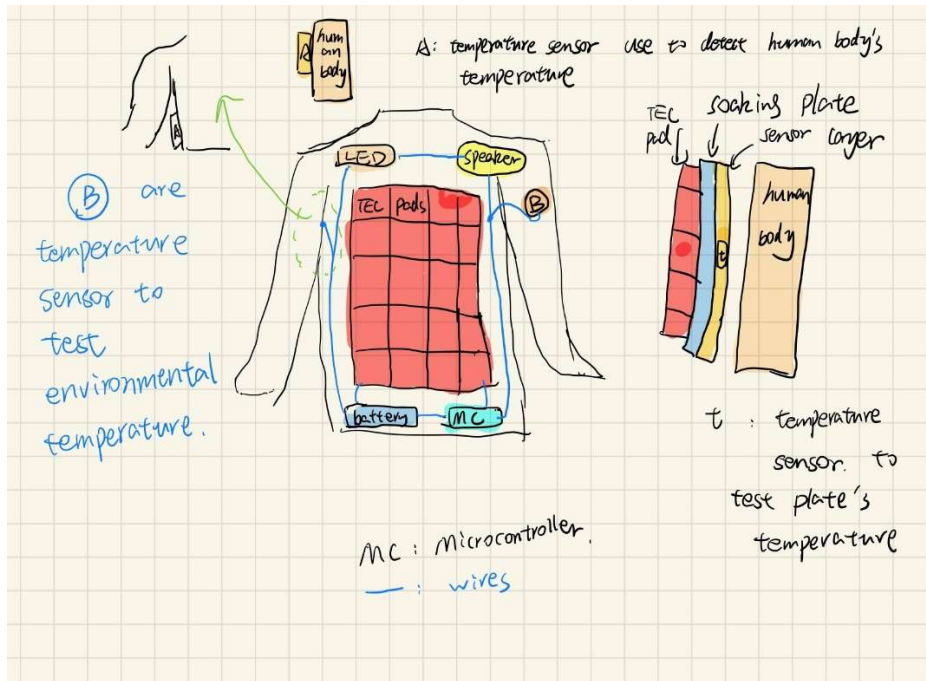 A
hum
an
body
A: temperature sensor use to detect human body's
temperature
TEC
pad
soaking plate
sensor layer
LED
speaker
A
B
TEC Pads
B are
temperature
sensor to
test
environmental
temperature.
human
body
t
battery
MC
t : temperature
sensor. to
test plate's
temperature
MC : Microcontroller.
— : wires